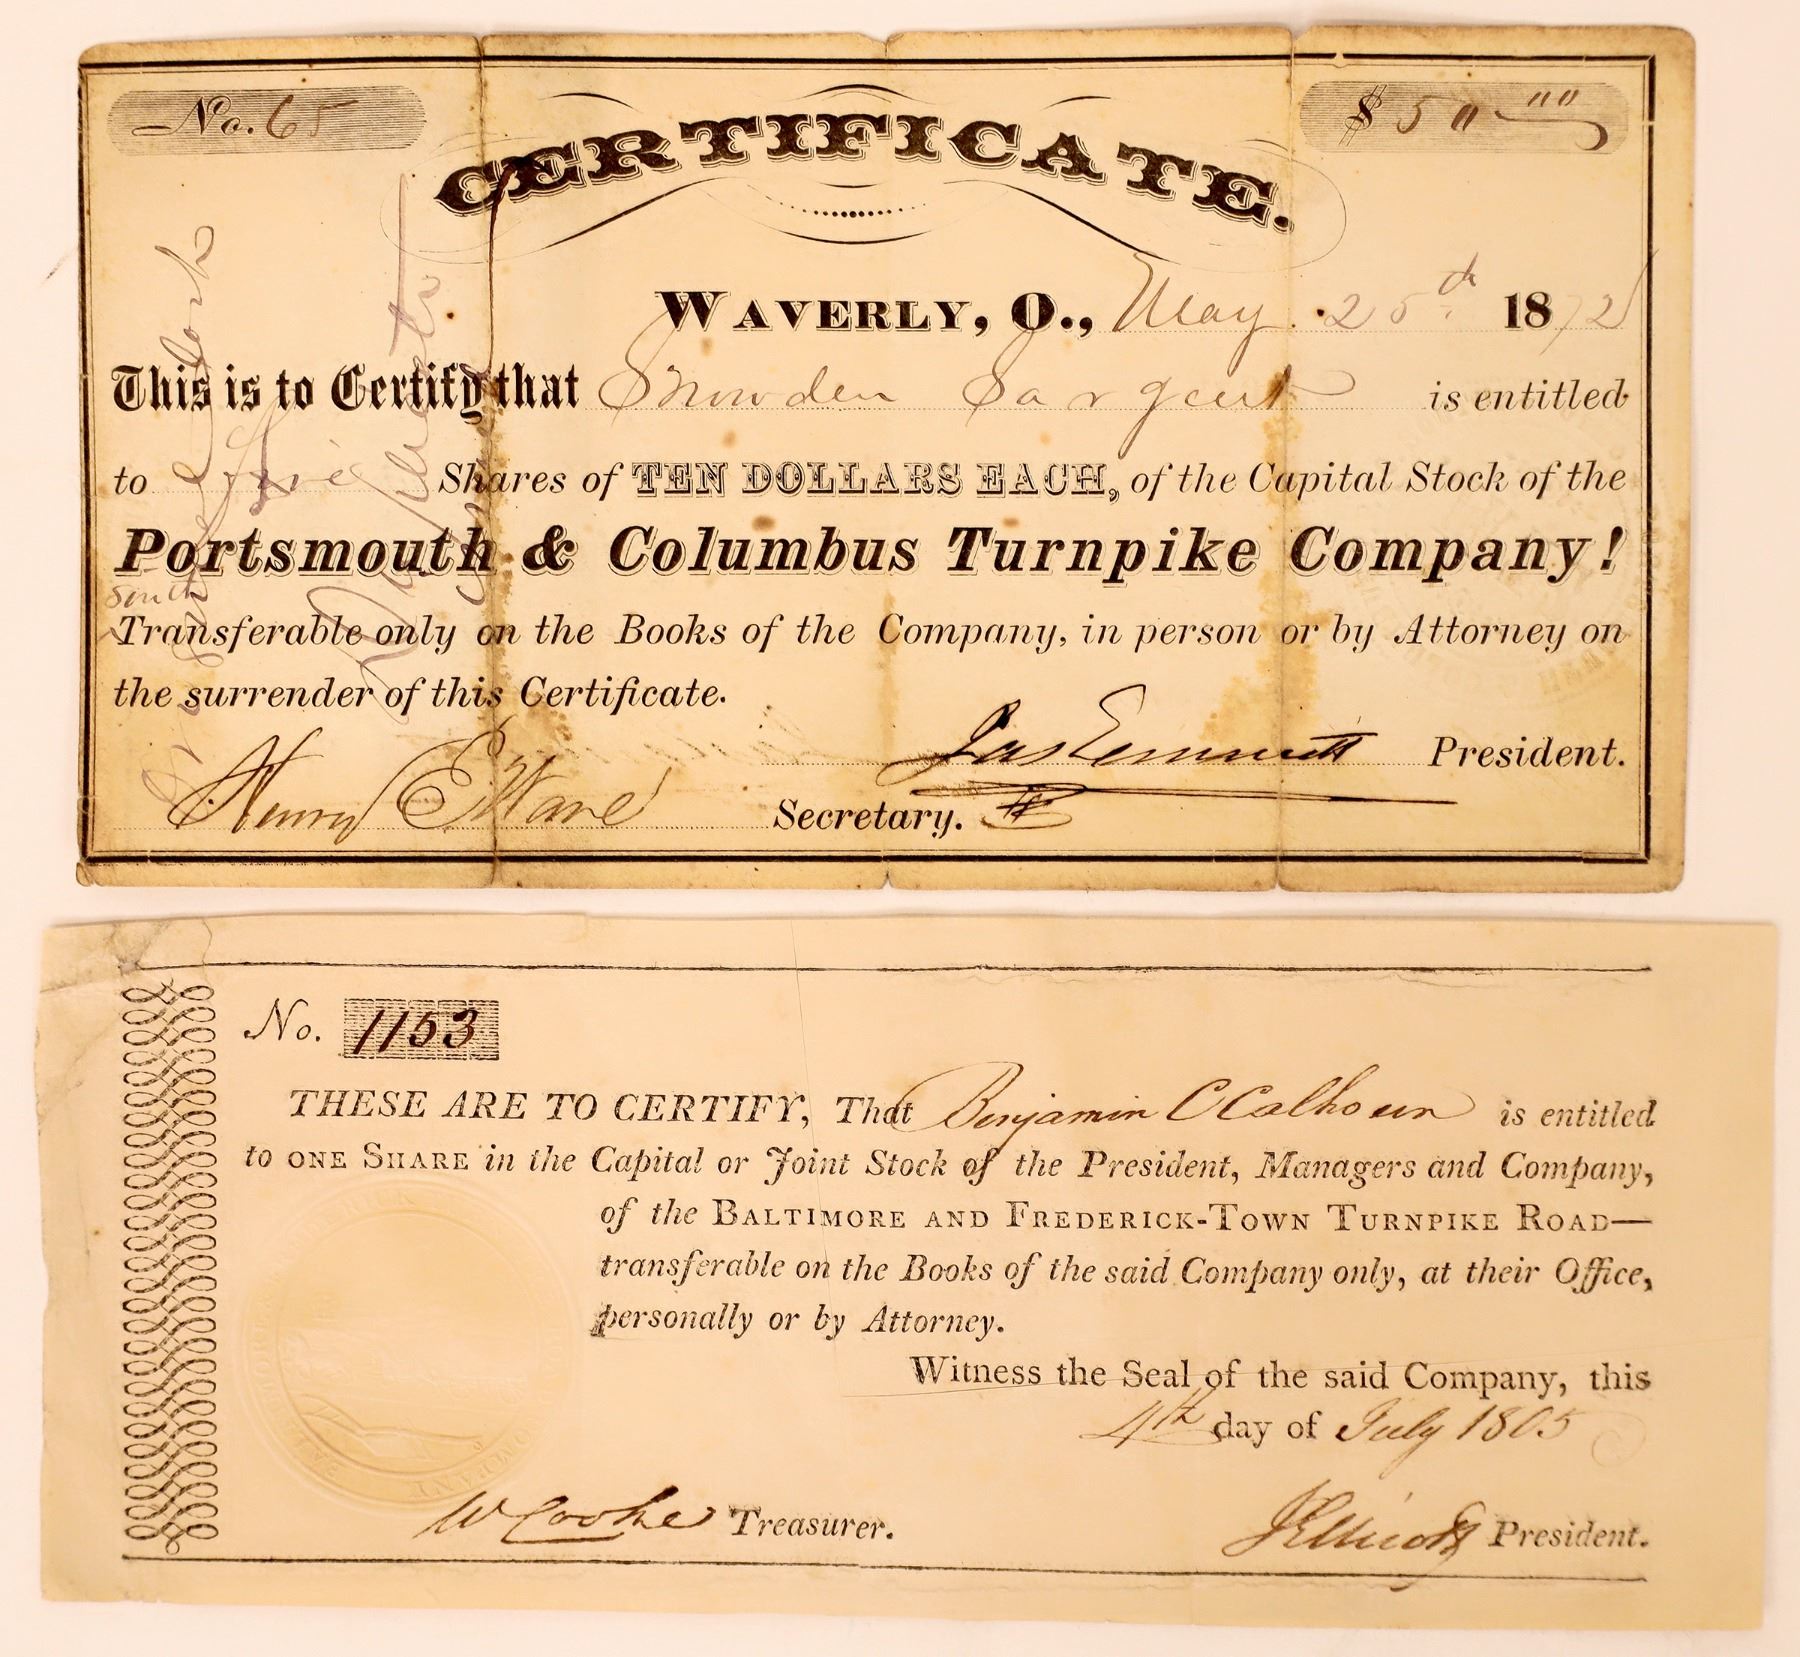 No. 65
$ 50 00
CERTIFICATE.
WAVERLY, O., May 25th 1872
This is to Certify that Snowden Sargent is entitled
to five Shares of TEN DOLLARS EACH, of the Capital Stock of the
Portsmouth & Columbus Turnpike Company!
Transferable only on the Books of the Company, in person or by Attorney on
the surrender of this Certificate.
Jas Emmitt President.
Henry E Ware Secretary.
No. 1153
THESE ARE TO CERTIFY, That Benjamin C Calhoun is entitled
to ONE SHARE in the Capital or Joint Stock of the President, Managers and Company,
of the BALTIMORE AND FREDERICK-TOWN TURNPIKE ROAD—
transferable on the Books of the said Company only, at their Office,
personally or by Attorney.
Witness the Seal of the said Company, this
4th day of July 1805
W Cooke Treasurer.
J Ellicott President.